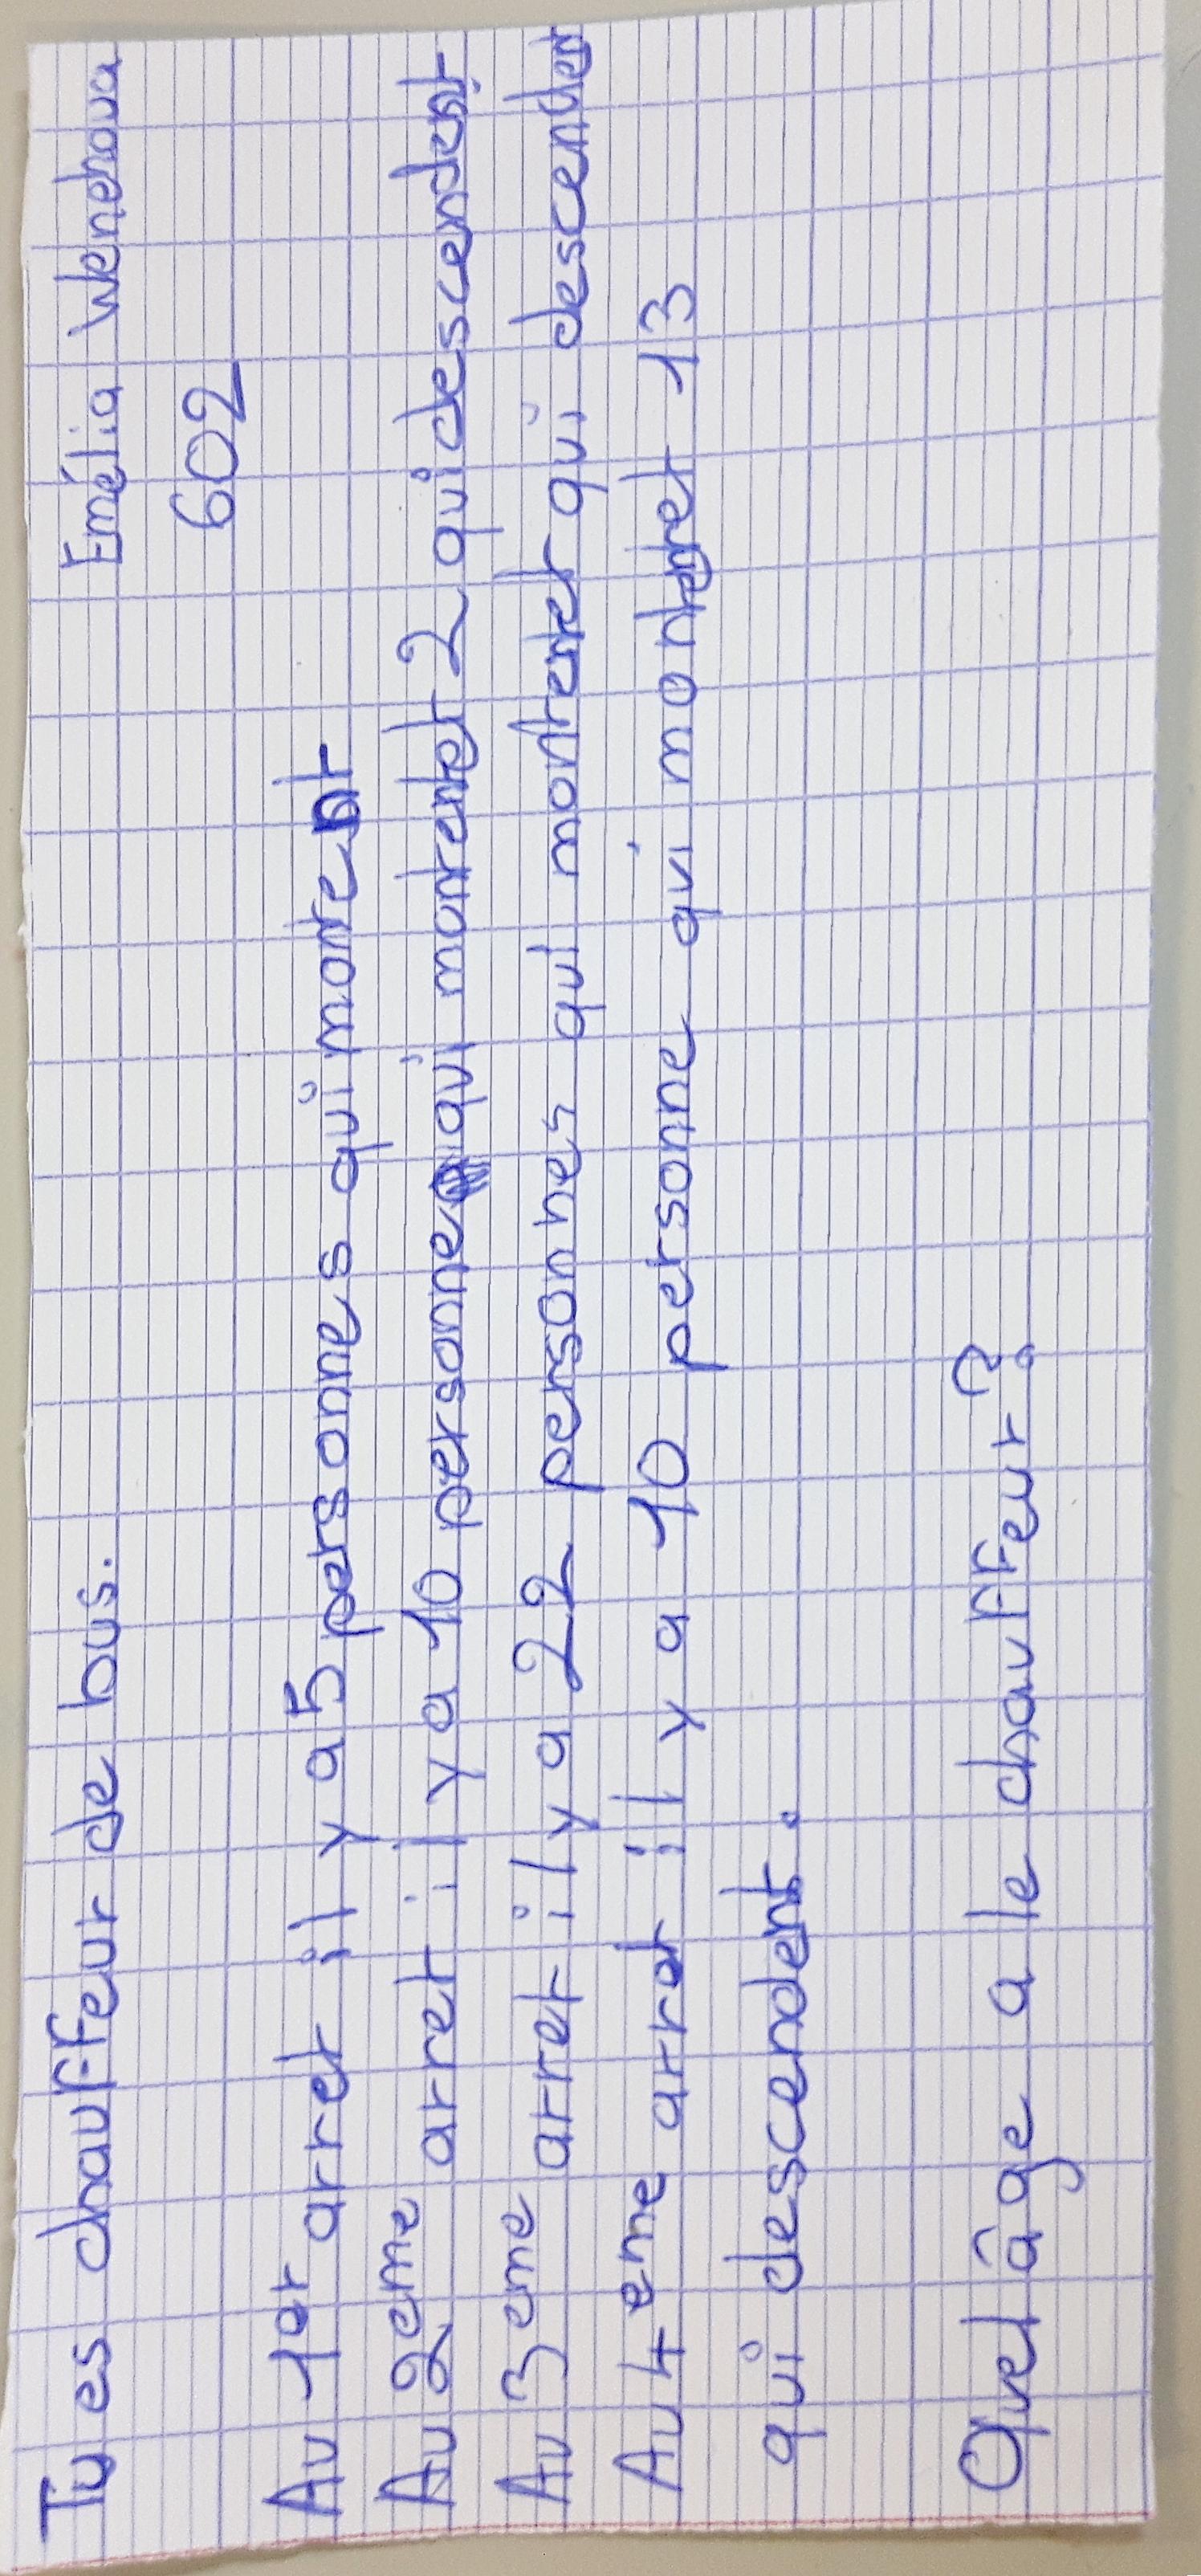 Tu es chauffeur de bus. Emélia Wenehoua
602
Au 1er arret il y a 5 personnes qui montent
Au 2eme arret il y a 10 personne qui montent 2 qui descendent
Au 3eme arret il y a 22 personnes qui montent qui descendent
Au 4eme arret il y a 10 personne qui montent 13
qui descendent.
Quel âge a le chauffeur ?